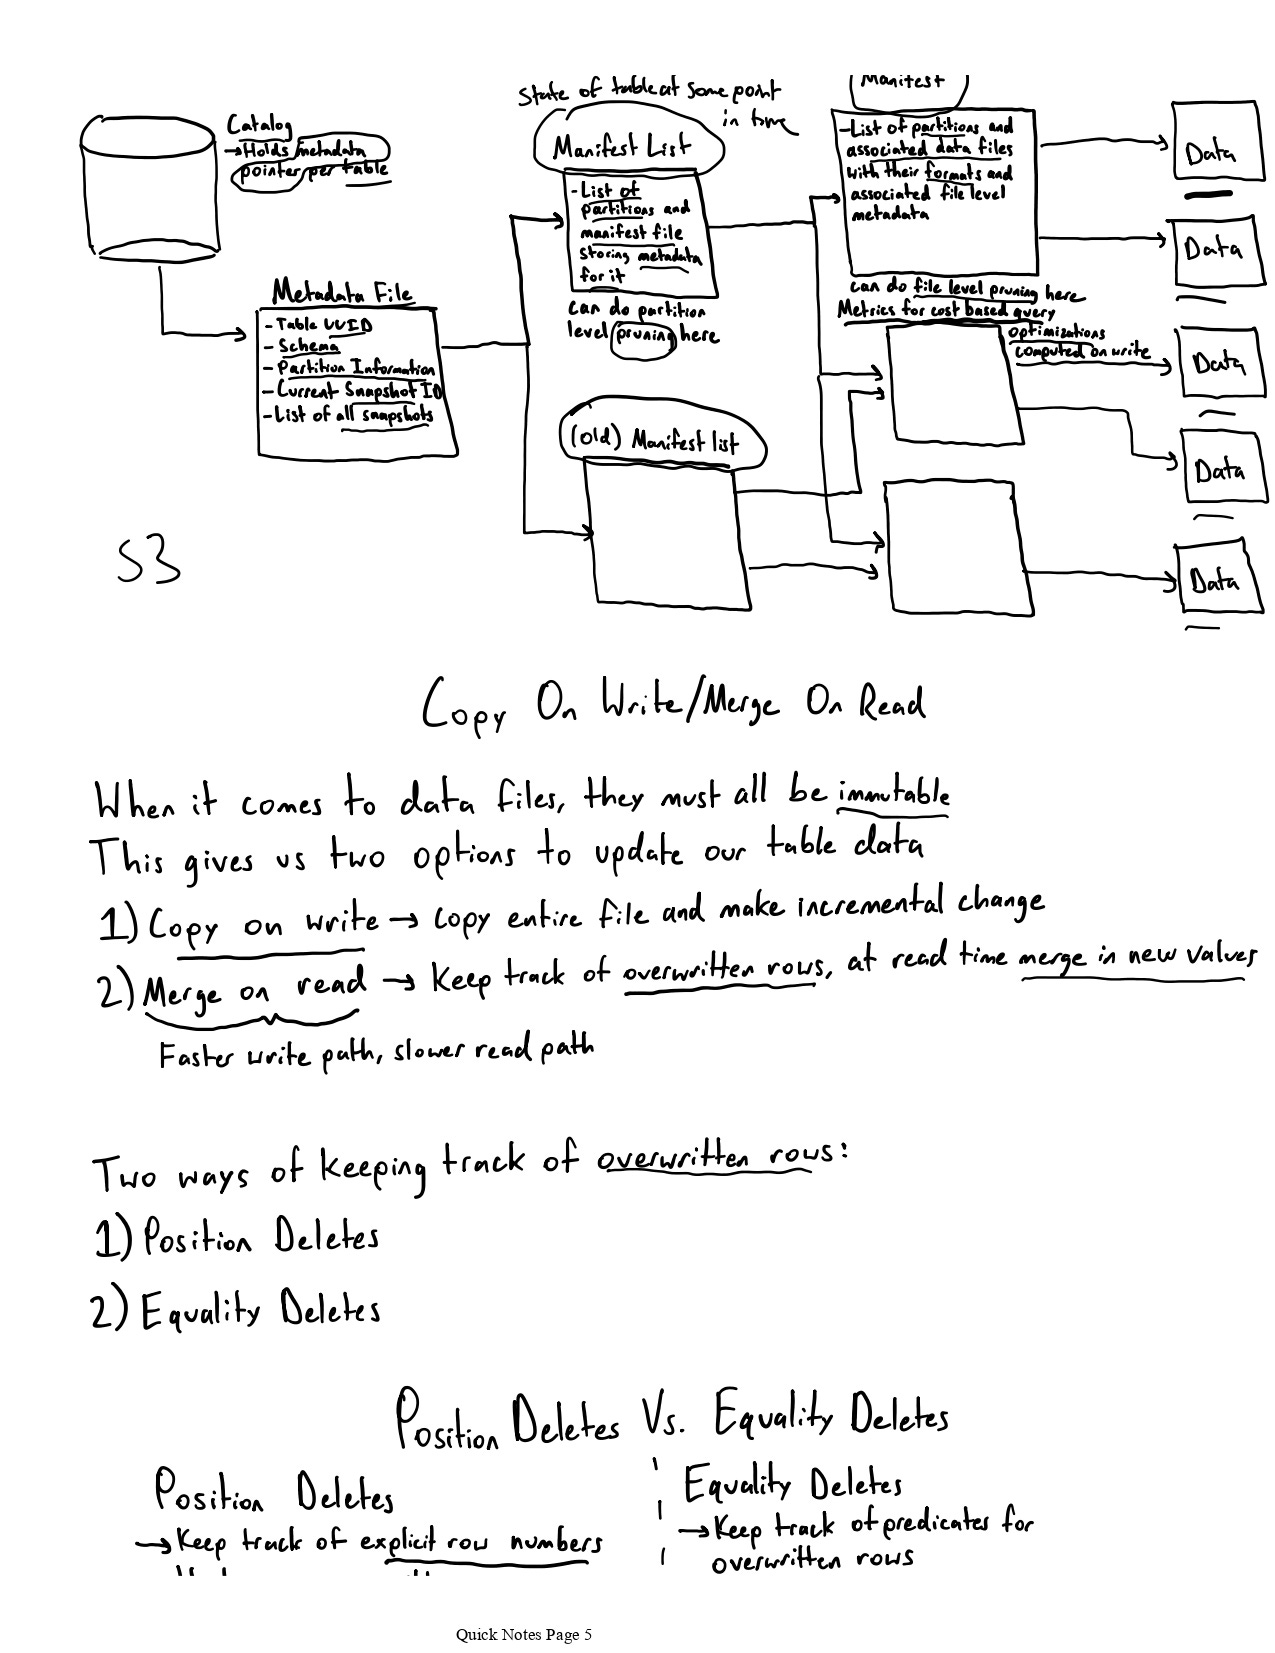 State of table at some point
in time
Manifest
Catalog
→Holds metadata
pointer per table
Manifest List
-List of
partitions and
manifest file
storing metadata
for it
can do partition
level pruning here
-List of partitions and
associated data files
with their formats and
associated file level
metadata
can do file level pruning here
Metrics for cost based query
optimizations
computed on write
Data
Data
Data
Data
Data
Metadata File
- Table UUID
- Schema
- Partition Information
- Current Snapshot ID
- List of all snapshots
(old) Manifest list
S3
Copy On Write/Merge On Read
When it comes to data files, they must all be immutable
This gives us two options to update our table data
1) Copy on write → copy entire file and make incremental change
2) Merge on read → Keep track of overwritten rows, at read time merge in new values
Faster write path, slower read path
Two ways of keeping track of overwritten rows:
1) Position Deletes
2) Equality Deletes
Position Deletes Vs. Equality Deletes
Position Deletes
→ Keep track of explicit row numbers
Equality Deletes
→ Keep track of predicates for
overwritten rows
Quick Notes Page 5